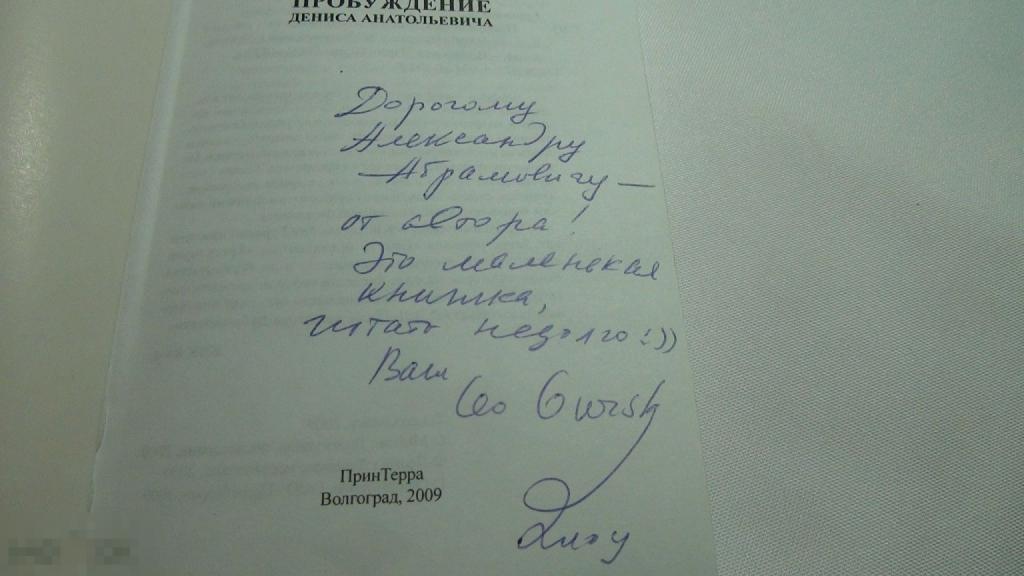 ПРОБУЖДЕНИЕ
ДЕНИСА АНАТОЛЬЕВИЧА
Дорогому
Александру
— Абрамовичу —
от автора!
Это маленькая
книжка,
читать недолго :))
Ваш
Leo Gursky
ПринТерра
Волгоград, 2009